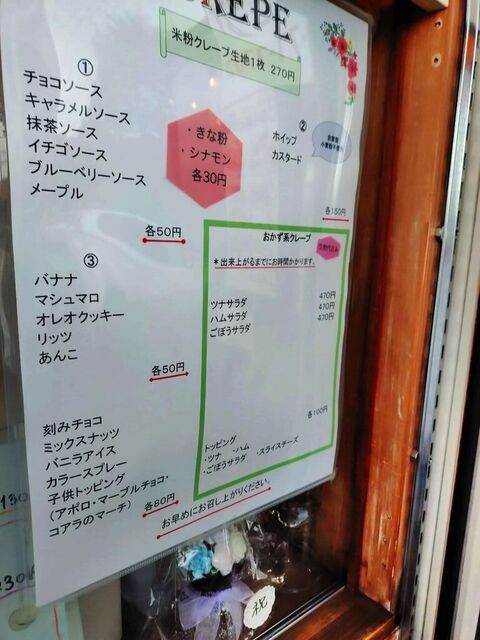 CREPE
米粉クレープ生地1枚 270円
①
チョコソース
キャラメルソース
抹茶ソース
イチゴソース
ブルーベリーソース
メープル
各50円
・きな粉
・シナモン
各30円
②
ホイップ
カスタード
各150円
③
バナナ
マシュマロ
オレオクッキー
リッツ
あんこ
各50円
刻みチョコ
ミックスナッツ
バニラアイス
カラースプレー
子供トッピング
(アポロ・マーブルチョコ・
コアラのマーチ)
各80円
おかず系クレープ
生地代込み
*出来上がるまでにお時間かかります。
ツナサラダ 470円
ハムサラダ 470円
ごぼうサラダ 470円
各100円
トッピング
・ツナ ・ハム ・スライスチーズ
・ごぼうサラダ
お早めにお召し上がりください。
祝